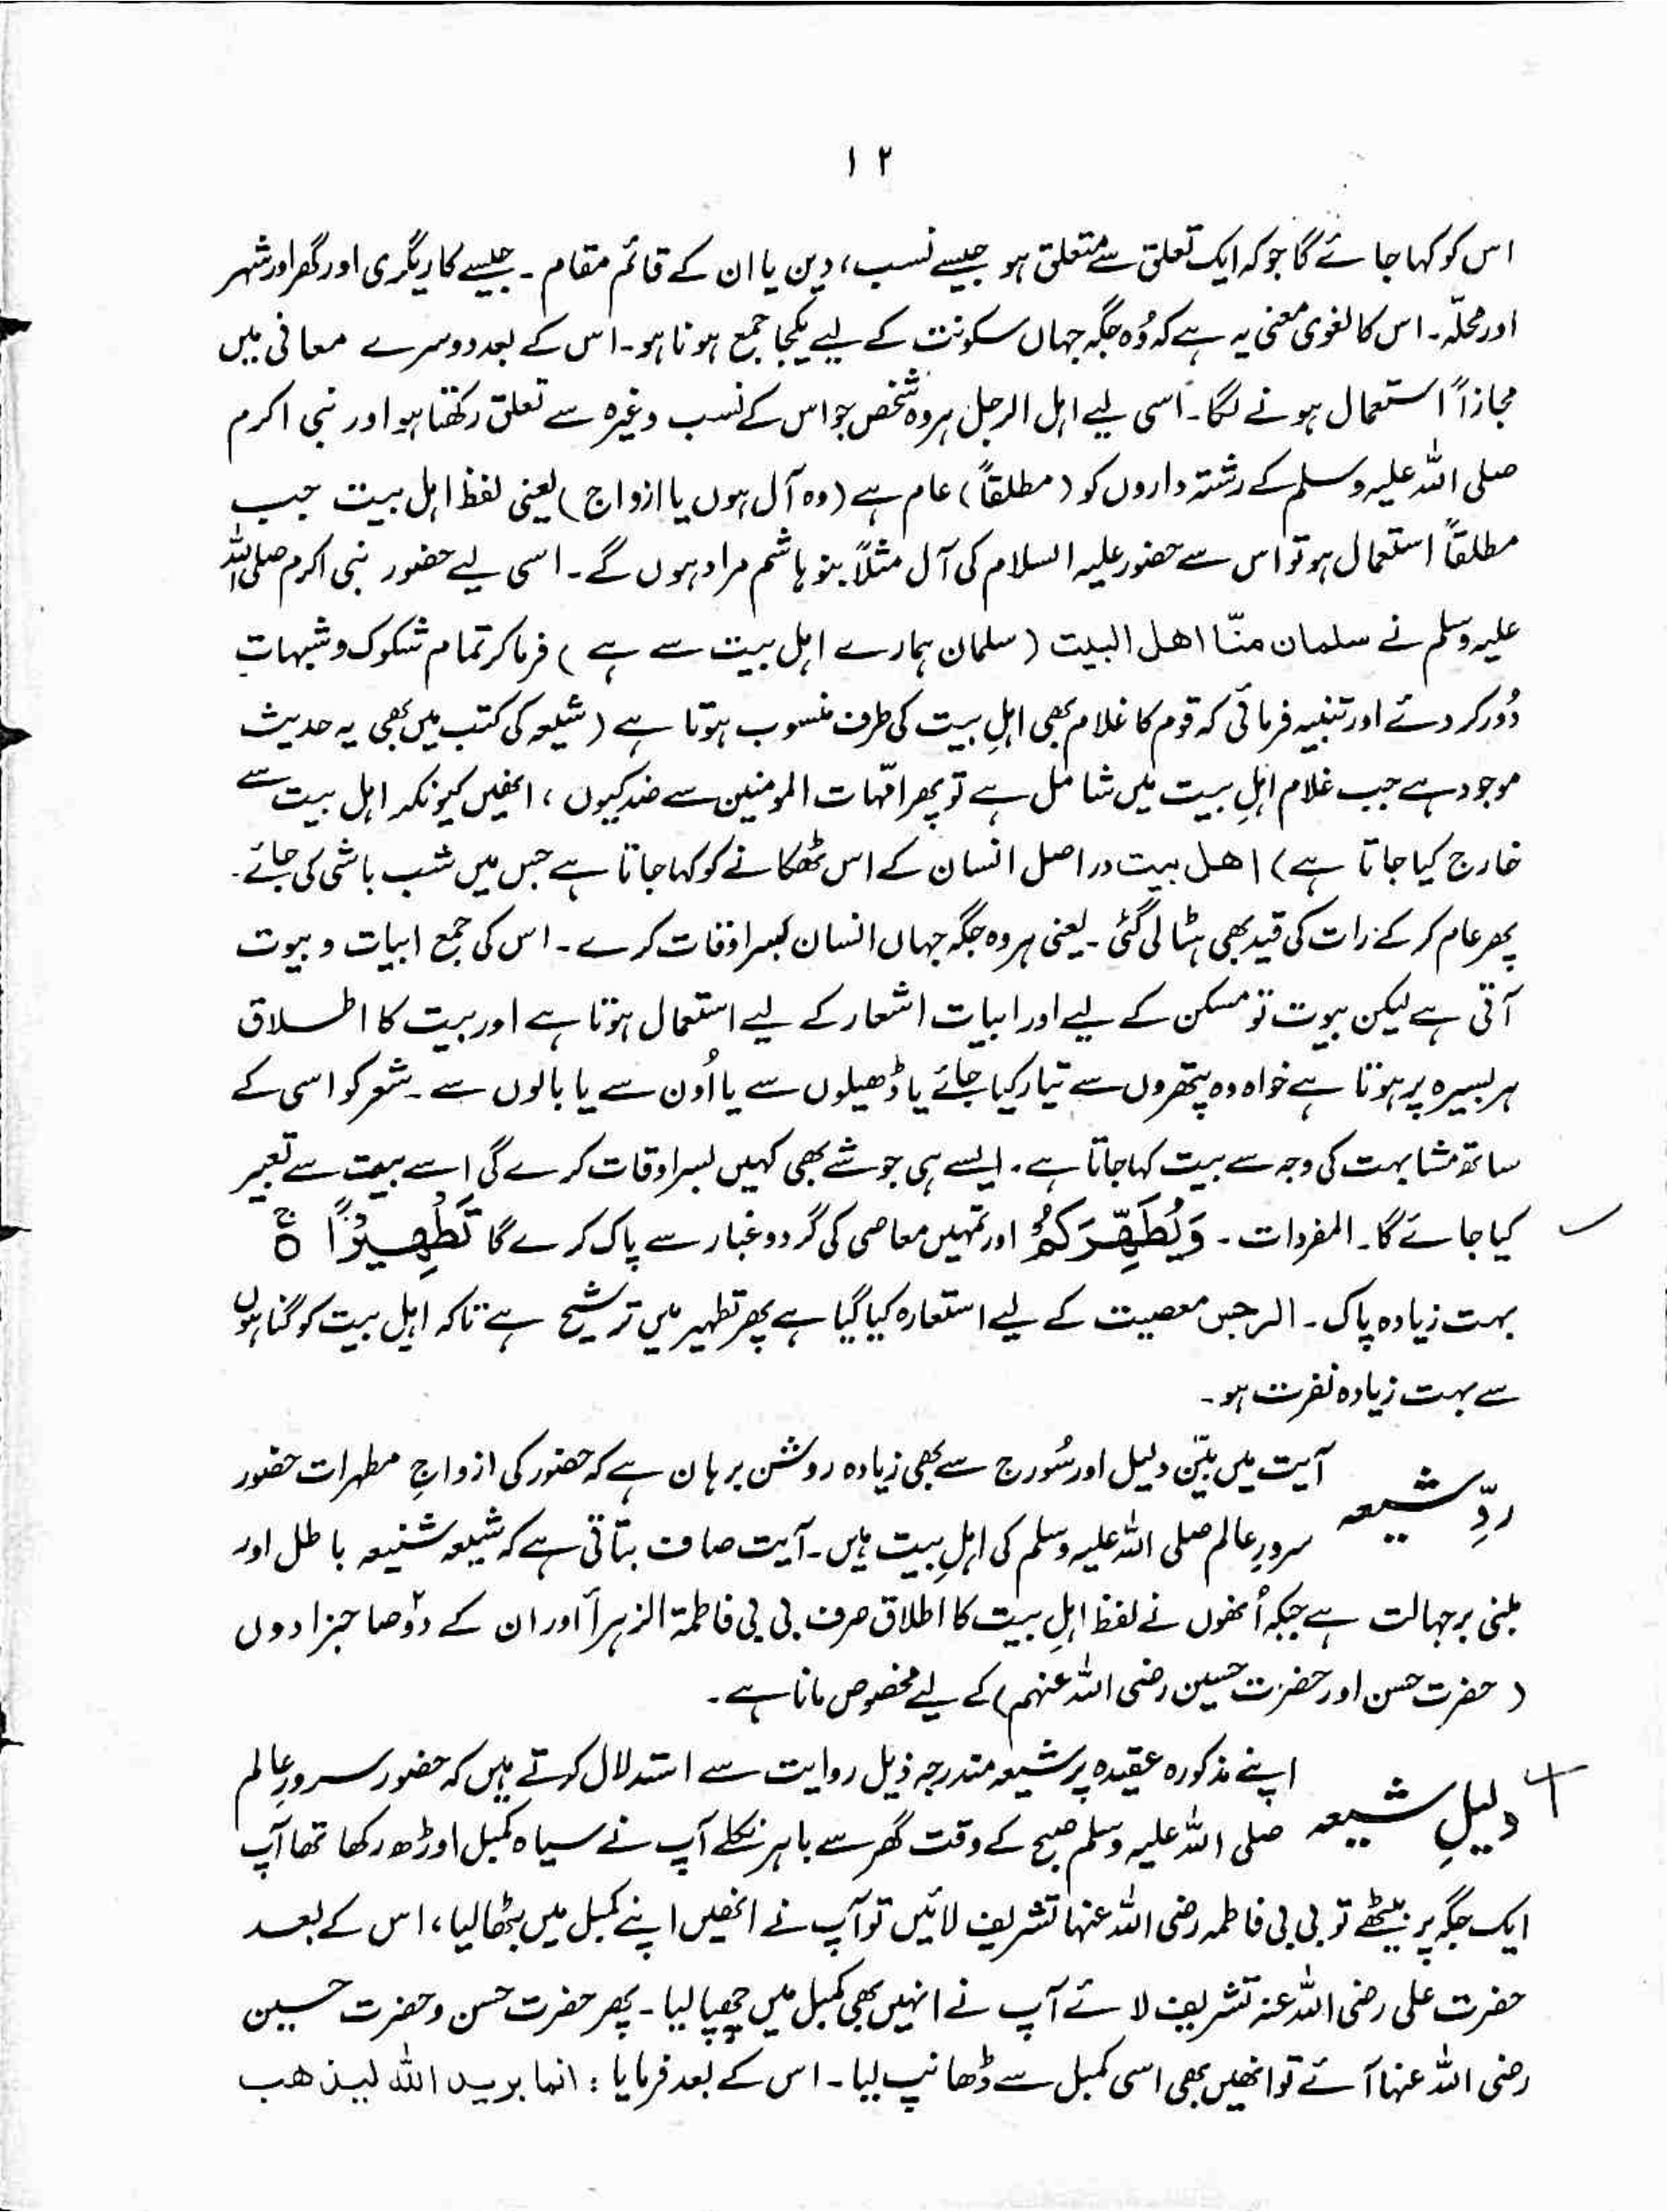 ۱۲
اس کو کہا جائے گا جو کہ ایک تعلق سے متعلق ہو جیسے نسب، دین یا ان کے قائم مقام ۔ جیسے کاریگری اور گھر اور شہر
اور محلّہ ۔ اس کا لغوی معنی یہ ہے کہ وُہ جگہ جہاں سکونت کے لیے یکجا جمع ہونا ہو ۔ اس کے بعد دوسرے معانی میں
مجازاً استعمال ہونے لگا ۔ اسی لیے اہل الرجل ہر وہ شخص جو اس کے نسب وغیرہ سے تعلق رکھتا ہو اور نبی اکرم
صلی اللہ علیہ وسلم کے رشتہ داروں کو (مطلقاً) عام ہے (وہ آل ہوں یا ازواج) یعنی لفظ اہل بیت جب
مطلقاً استعمال ہو تو اس سے حضور علیہ السلام کی آل مثلاً بنو ہاشم مراد ہوں گے ۔ اسی لیے حضور نبی اکرم صلی اللہ
علیہ وسلم نے سلمان منّا اھل البیت (سلمان ہمارے اہل بیت سے ہے) فرما کر تمام شکوک و شبہات
دُور کر دئے اور تنبیہ فرمائی کہ قوم کا غلام بھی اہلِ بیت کی طرف منسوب ہوتا ہے (شیعہ کی کتب میں بھی یہ حدیث
موجود ہے جب غلام اہلِ بیت میں شامل ہے تو پھر امّہات المومنین سے ضد کیوں ، انھیں کیونکر اہل بیت سے
خارج کیا جاتا ہے) اھل بیت دراصل انسان کے اس ٹھکانے کو کہا جاتا ہے جس میں شب باشی کی جائے ۔
پھر عام کر کے رات کی قید بھی ہٹالی گئی ۔ یعنی ہر وہ جگہ جہاں انسان بسر اوقات کرے ۔ اس کی جمع ابیات و بیوت
آتی ہے لیکن بیوت تو مسکن کے لیے اور ابیات اشعار کے لیے استعمال ہوتا ہے اور بیت کا اطلاق
ہر بسیرہ پر ہوتا ہے خواہ وہ پتھروں سے تیار کیا جائے یا ڈھیلوں سے یا اُون سے یا بالوں سے ۔ شعر کو اسی کے
ساتھ مشابہت کی وجہ سے بیت کہا جاتا ہے ۔ ایسے ہی جو شے بھی کہیں بسر اوقات کرے گی اسے بیت سے تعبیر
کیا جائے گا ۔ المفردات ۔ وَیُطَھِّرَکُمْ اور تمہیں معاصی کی گرد و غبار سے پاک کرے گا تَطْھِیْرًا ○ ج
بہت زیادہ پاک ۔ الرجس معصیت کے لیے استعارہ کیا گیا ہے پھر تطہیر میں ترشیح ہے تاکہ اہل بیت کو گناہوں
سے بہت زیادہ نفرت ہو ۔
ردِّ شیعہ آیت میں بیّن دلیل اور سُورج سے بھی زیادہ روشن برہان ہے کہ حضور کی ازواجِ مطہرات حضور
سرورِ عالم صلی اللہ علیہ وسلم کی اہلِ بیت ہیں ۔ آیت صاف بتاتی ہے کہ شیعہ شنیعہ باطل اور
مبنی بر جہالت ہے جبکہ اُنھوں نے لفظ اہلِ بیت کا اطلاق صرف بی بی فاطمۃ الزہرا اور ان کے دو صاحبزادوں
(حضرت حسن اور حضرت حسین رضی اللہ عنہم) کے لیے مخصوص مانا ہے ۔
دلیلِ شیعہ اپنے مذکورہ عقیدہ پر شیعہ مندرجہ ذیل روایت سے استدلال کرتے ہیں کہ حضور سرورِ عالم
صلی اللہ علیہ وسلم صبح کے وقت گھر سے باہر نکلے آپ نے سیاہ کمبل اوڑھ رکھا تھا آپ
ایک جگہ پر بیٹھے تو بی بی فاطمہ رضی اللہ عنہا تشریف لائیں تو آپ نے انھیں اپنے کمبل میں بٹھا لیا ، اس کے بعد
حضرت علی رضی اللہ عنہ تشریف لائے آپ نے انہیں بھی کمبل میں چھپا لیا ۔ پھر حضرت حسن و حضرت حسین
رضی اللہ عنہما آئے تو انھیں بھی اسی کمبل سے ڈھانپ لیا ۔ اس کے بعد فرمایا : انما یرید اللہ لیذھب